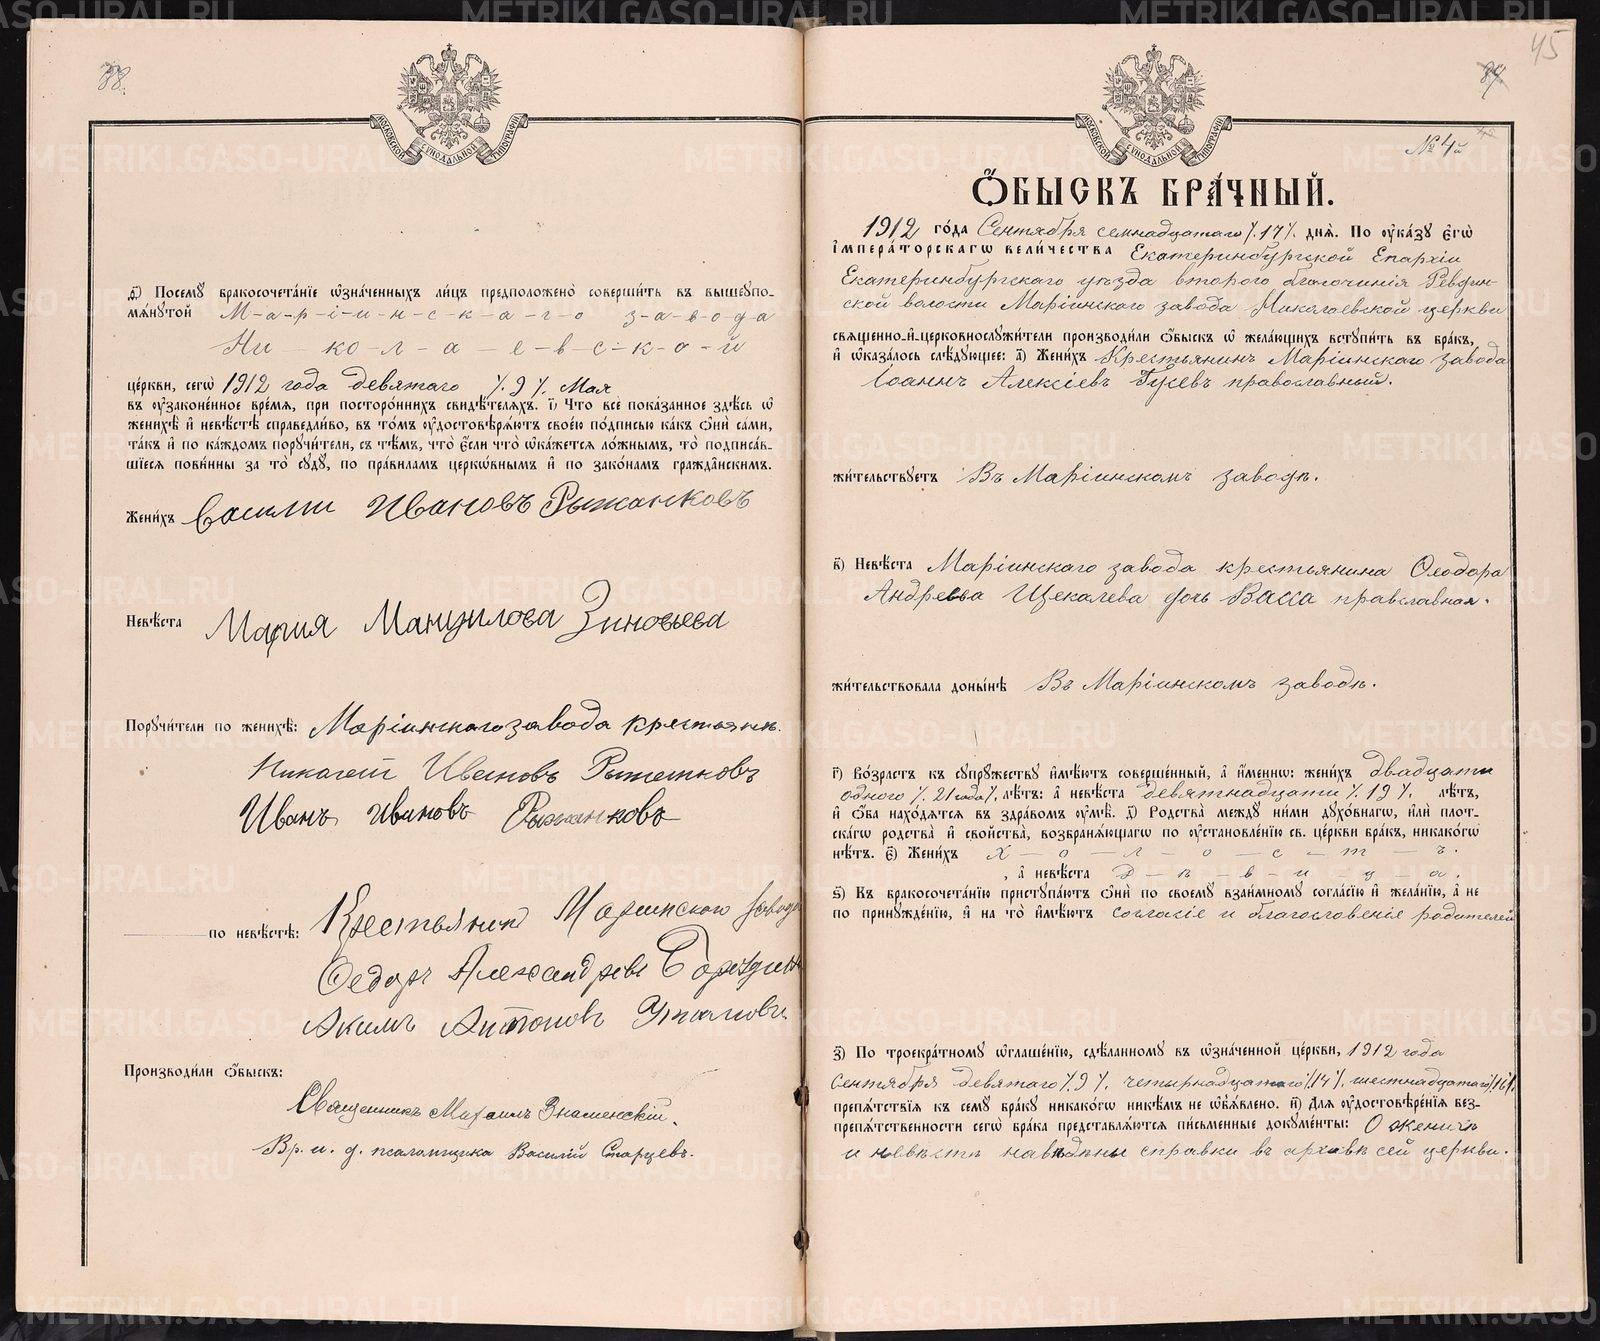 88.
МОСКОВСКОЙ СѴНОДАЛЬНОЙ ТИПОГРАФІИ
з҃) Посемꙋ̀ бракосочета́нїе ѡ҆зна́ченныхъ ли́цъ предположено̀ соверши́ть въ вышеупо-
мѧ́нутой М-а-р-і-и-н-с-к-а-г-о з-а-в-о-д-а
Ни ко-л-а-е-в-с-к-о-й
це́ркви, сегѡ̀ 1912 года девятаго /.9/. Мая
въ ᲂу҆зако́ненное вре́мѧ, при посторо́ннихъ свидѣ́телѧхъ. і҃) Что̀ всѐ пока́занное здѣ́сь ѡ҆
женихѣ̀ и҆ невѣ́стѣ справедли́во, въ то́мъ ᲂу҆достовѣрѧ́ютъ свое́ю по́дписью ка́къ ѻ҆нѝ са́ми,
та́къ и҆ по ка́ждомъ поручи́тели, съ тѣ́мъ, что̀ є҆́сли что̀ ѡ҆ка́жетсѧ ло́жнымъ, то̀ подписа́в-
шїесѧ пови́нны за то̀ сꙋдꙋ̀, по пра́виламъ церко́внымъ и҆ по зако́намъ гражда́нскимъ.
Жени́хъ Василий Ивановъ Рыжанковъ
Невѣ́ста Мария Мануилова Зиновьева
Поручи́тели по женихѣ̀: Маріинскаго завода крестьяне.
Николай Ивановъ Рыжанковъ
Иванъ Ивановъ Рыжанковъ
по невѣ́стѣ: Крестьянин Мариинского завода
Федоръ Александровъ
Акимъ Антоновъ
Производи́ли ѻ҆́быскъ:
Священникъ Михаилъ Знаменскій.
Вр. и. д. псаломщика Василій Старцевъ.
45
89
МОСКОВСКОЙ СѴНОДАЛЬНОЙ ТИПОГРАФІИ
№ 4й
Ѻ҆́БЫСКЪ БРА́ЧНЫЙ.
1912 го́да Сентября семнадцатаго /.17/. днѧ̀. По ᲂу҆ка́зꙋ є҆гѡ̀
і҆мпера́торскагѡ вели́чества Екатеринбургской Епархіи
Екатеринбургскаго уѣзда втораго благочинія Ревдин-
ской волости Маріинскаго завода Николаевской церкви
свѧще́нно-и҆-церковнослꙋжи́тели производи́ли ѻ҆́быскъ ѡ҆ жела́ющихъ встꙋпи́ть въ бра́къ,
и҆ ѡ҆каза́лось слѣ́дꙋющее: а҃) Жени́хъ Крестьянинъ Маріинскаго завода
Іоаннъ Алексіевъ Гусевъ православный.
жи́тельствꙋетъ Въ Маріинскомъ заводѣ.
в҃) Невѣ́ста Маріинскаго завода крестьянина Ѳеодора
Андреева Щекалева дочь Васса православная.
жи́тельствовала доны́нѣ Въ Маріинскомъ заводѣ.
г҃) Во́зрастъ къ сꙋпрꙋ́жествꙋ и҆мѣ́ютъ соверше́нный, а҆ и҆́менно: жени́хъ двадцати
одного /. 21 года/. лѣ́тъ: а҆ невѣ́ста девятнадцати /. 19 /. лѣ́тъ,
и҆ ѻ҆́ба нахо́дѧтсѧ въ здра́вомъ ᲂу҆мѣ̀. д҃) Родства̀ междꙋ ни́ми дꙋхо́внагѡ, и҆лѝ пло́т-
скагѡ родства̀ и҆ сво́йства, возбранѧ́ющагѡ по ᲂу҆становле́нїю св. це́ркви бра́къ, никако́гѡ
нѣ́тъ. є҃) Жени́хъ Х — о — л — о — с — т — ъ.
, а҆ невѣ́ста Д — ѣ — в — и — ц — а.
ѕ҃) Въ бракосочета́нїю пристꙋпа́ютъ ѻ҆нѝ по своемꙋ̀ взаи́мномꙋ согла́сїю и҆ жела́нїю, а҆ не
по принꙋжде́нїю, и҆ на то̀ и҆мѣ́ютъ согласіе и благословеніе родителей
з҃) По троекра́тномꙋ ѡ҆глаше́нїю, сдѣ́ланномꙋ въ ѡ҆зна́ченной це́ркви, 1912 года
сентября девятаго /.9/. четырнадцатаго /.14/. шестнадцатаго /.16/.
препѧ́тствїѧ къ семꙋ̀ бра́кꙋ никако́гѡ никѣ́мъ не ѡ҆б̾ѧ́влено. и҃) Для ᲂу҆достовѣре́нїѧ без-
препѧ́тственности сегѡ̀ бра́ка представлѧ́ютсѧ пи́сьменные докꙋме́нты: О женихѣ
и невѣстѣ наведены справки въ архивѣ сей церкви.